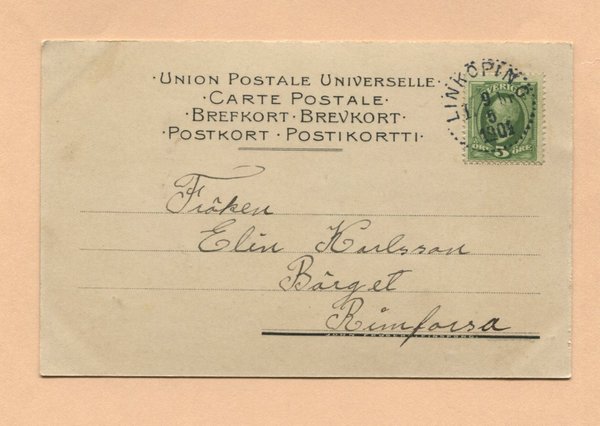 ·UNION POSTALE UNIVERSELLE·
·CARTE POSTALE·
·BREFKORT·BREVKORT·
·POSTKORT·POSTIKORTTI·
LINKÖPING
9
5
1901
SVERIGE
ÖRE 5 ÖRE
Fröken
Elin Karlsson
Börget
Rimforsa